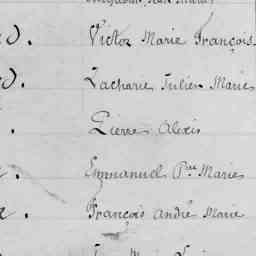 d. Victor Marie François
d. Zacharie Julien Marie
Pierre Alexis
Emmanuel Pre Marie
François André Marie